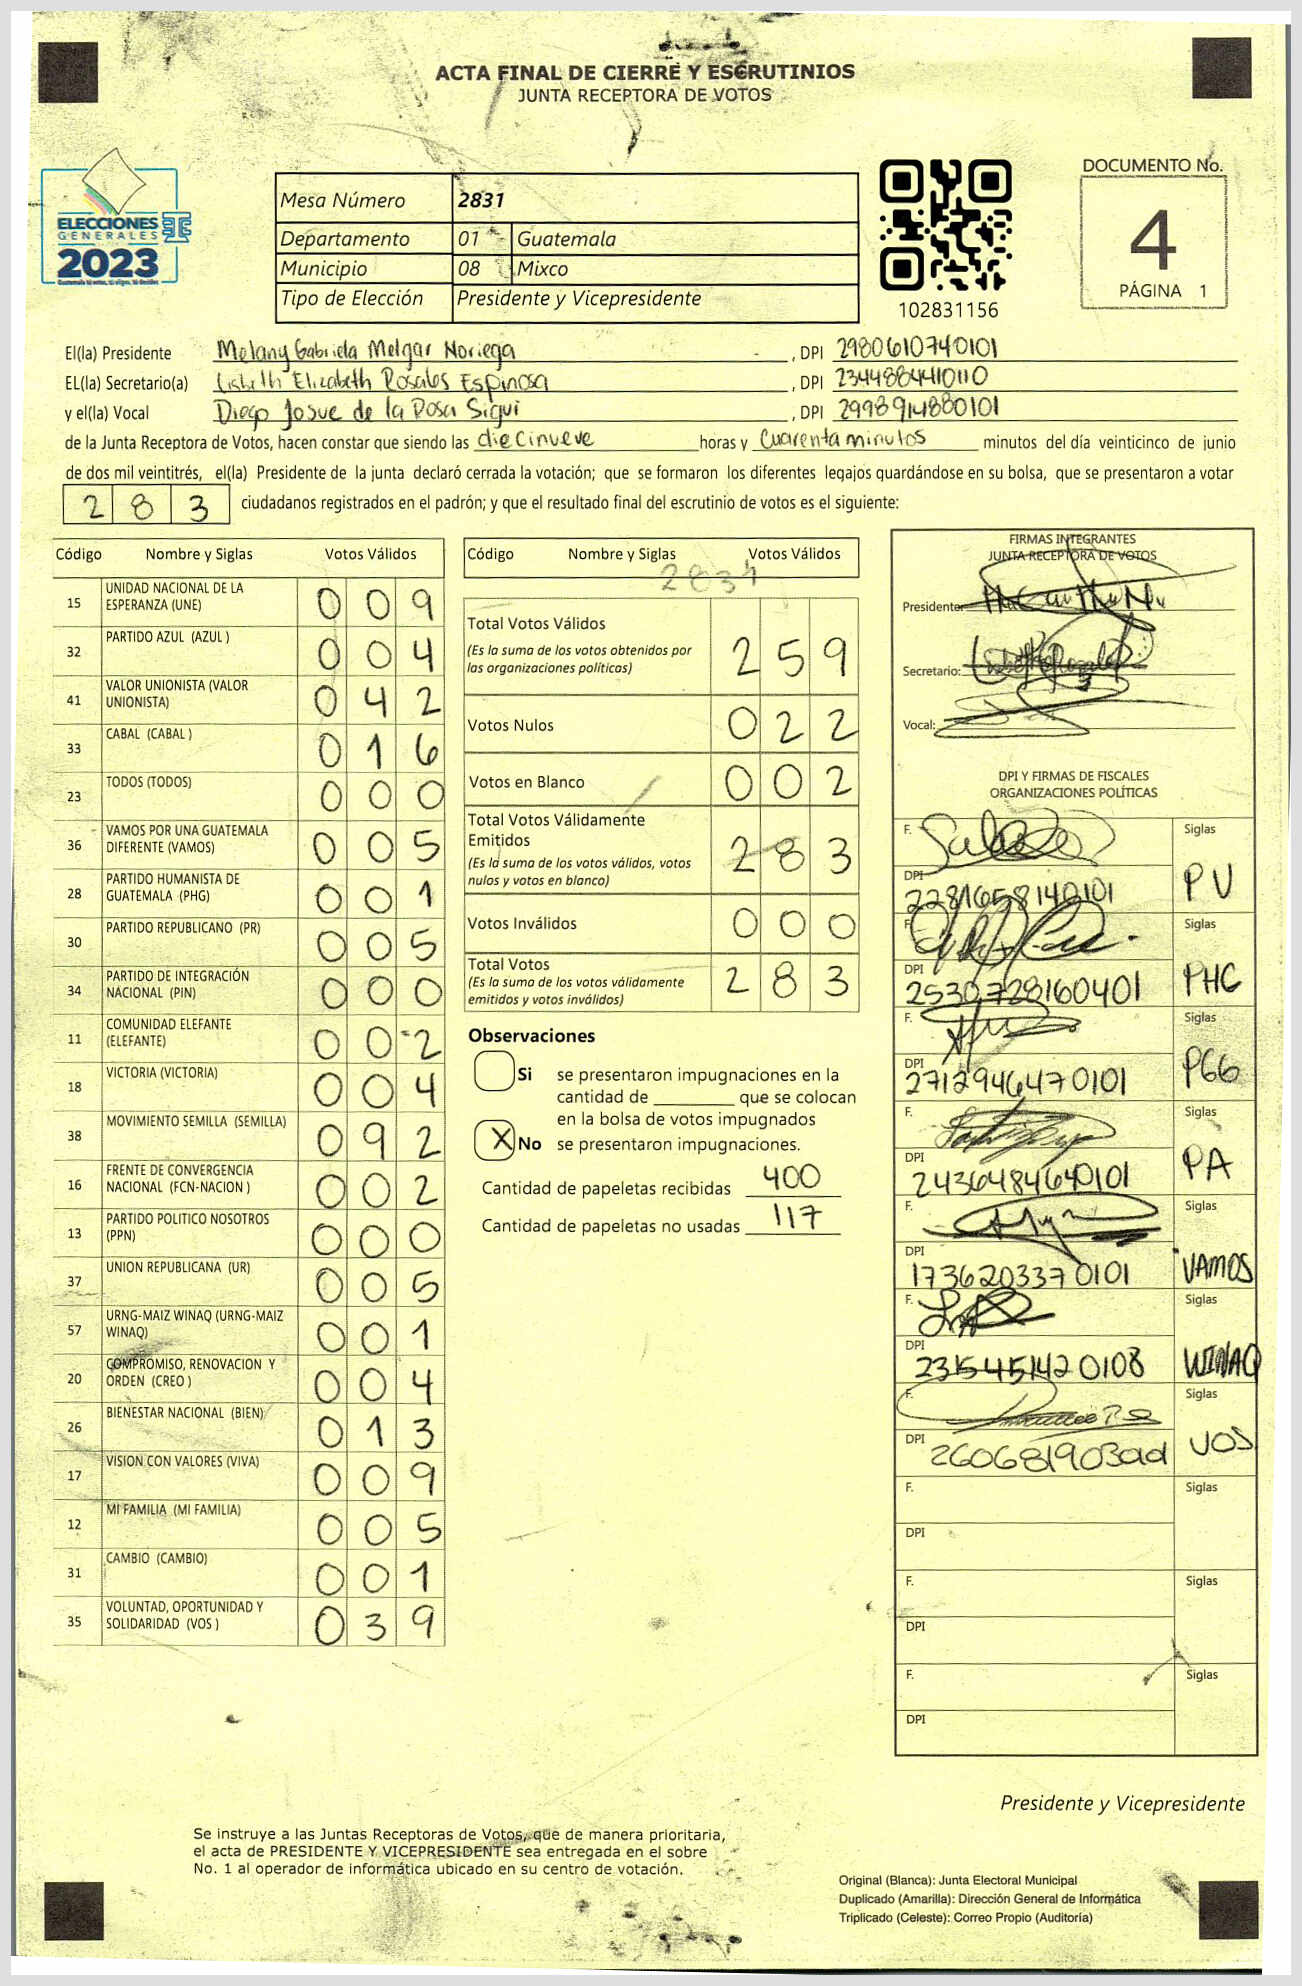 ACTA FINAL DE CIERRE Y ESCRUTINIOS
JUNTA RECEPTORA DE VOTOS
ELECCIONES
GENERALES TSE
2023
Mesa Número 2831
Departamento 01 Guatemala
Municipio 08 Mixco
Tipo de Elección Presidente y Vicepresidente
102831156
DOCUMENTO No.
4
PÁGINA 1
El(la) Presidente Melany Gabriela Melgar Noriega , DPI 2980610740101
EL(la) Secretario(a) Lisbeth Elizabeth Rosales Espinosa , DPI 2344884410110
y el(la) Vocal Diego Josue de la Rosa Sigui , DPI 2998914880101
de la Junta Receptora de Votos, hacen constar que siendo las diecinueve horas y Cuarenta minutos minutos del día veinticinco de junio
de dos mil veintitrés, el(la) Presidente de la junta declaró cerrada la votación; que se formaron los diferentes legajos guardándose en su bolsa, que se presentaron a votar
283 ciudadanos registrados en el padrón; y que el resultado final del escrutinio de votos es el siguiente:
Código Nombre y Siglas Votos Válidos
15 UNIDAD NACIONAL DE LA ESPERANZA (UNE) 009
32 PARTIDO AZUL (AZUL ) 004
41 VALOR UNIONISTA (VALOR UNIONISTA) 042
33 CABAL (CABAL ) 016
23 TODOS (TODOS) 000
36 VAMOS POR UNA GUATEMALA DIFERENTE (VAMOS) 005
28 PARTIDO HUMANISTA DE GUATEMALA (PHG) 001
30 PARTIDO REPUBLICANO (PR) 005
34 PARTIDO DE INTEGRACIÓN NACIONAL (PIN) 000
11 COMUNIDAD ELEFANTE (ELEFANTE) 002
18 VICTORIA (VICTORIA) 004
38 MOVIMIENTO SEMILLA (SEMILLA) 092
16 FRENTE DE CONVERGENCIA NACIONAL (FCN-NACION ) 002
13 PARTIDO POLITICO NOSOTROS (PPN) 000
37 UNION REPUBLICANA (UR) 005
57 URNG-MAIZ WINAQ (URNG-MAIZ WINAQ) 001
20 COMPROMISO, RENOVACION Y ORDEN (CREO ) 004
26 BIENESTAR NACIONAL (BIEN) 013
17 VISION CON VALORES (VIVA) 009
12 MI FAMILIA (MI FAMILIA) 005
31 CAMBIO (CAMBIO) 001
35 VOLUNTAD, OPORTUNIDAD Y SOLIDARIDAD (VOS ) 039
Código Nombre y Siglas Votos Válidos
2831
Total Votos Válidos 259
(Es la suma de los votos obtenidos por
las organizaciones políticas)
Votos Nulos 022
Votos en Blanco 002
Total Votos Válidamente
Emitidos 283
(Es la suma de los votos válidos, votos
nulos y votos en blanco)
Votos Inválidos 000
Total Votos 283
(Es la suma de los votos válidamente
emitidos y votos inválidos)
Observaciones
Si se presentaron impugnaciones en la
cantidad de ________ que se colocan
en la bolsa de votos impugnados
X No se presentaron impugnaciones.
Cantidad de papeletas recibidas 400
Cantidad de papeletas no usadas 117
FIRMAS INTEGRANTES
JUNTA RECEPTORA DE VOTOS
Presidente:
Secretario:
Vocal:
DPI Y FIRMAS DE FISCALES
ORGANIZACIONES POLÍTICAS
F. Siglas
DPI 2281658140101 PU
F. Siglas
DPI 2530728160401 PHG
F. Siglas
DPI 2712946470101 PGG
F. Siglas
DPI 2436484640101 PA
F. Siglas
DPI 1736203370101 VAMOS
F. Siglas
DPI 2315451420108 WINAQ
F. Siglas
DPI VOS
F. Siglas
DPI
F. Siglas
DPI
F. Siglas
DPI
Presidente y Vicepresidente
Se instruye a las Juntas Receptoras de Votos, que de manera prioritaria,
el acta de PRESIDENTE Y VICEPRESIDENTE sea entregada en el sobre
No. 1 al operador de informática ubicado en su centro de votación.
Original (Blanca): Junta Electoral Municipal
Duplicado (Amarilla): Dirección General de Informática
Triplicado (Celeste): Correo Propio (Auditoría)